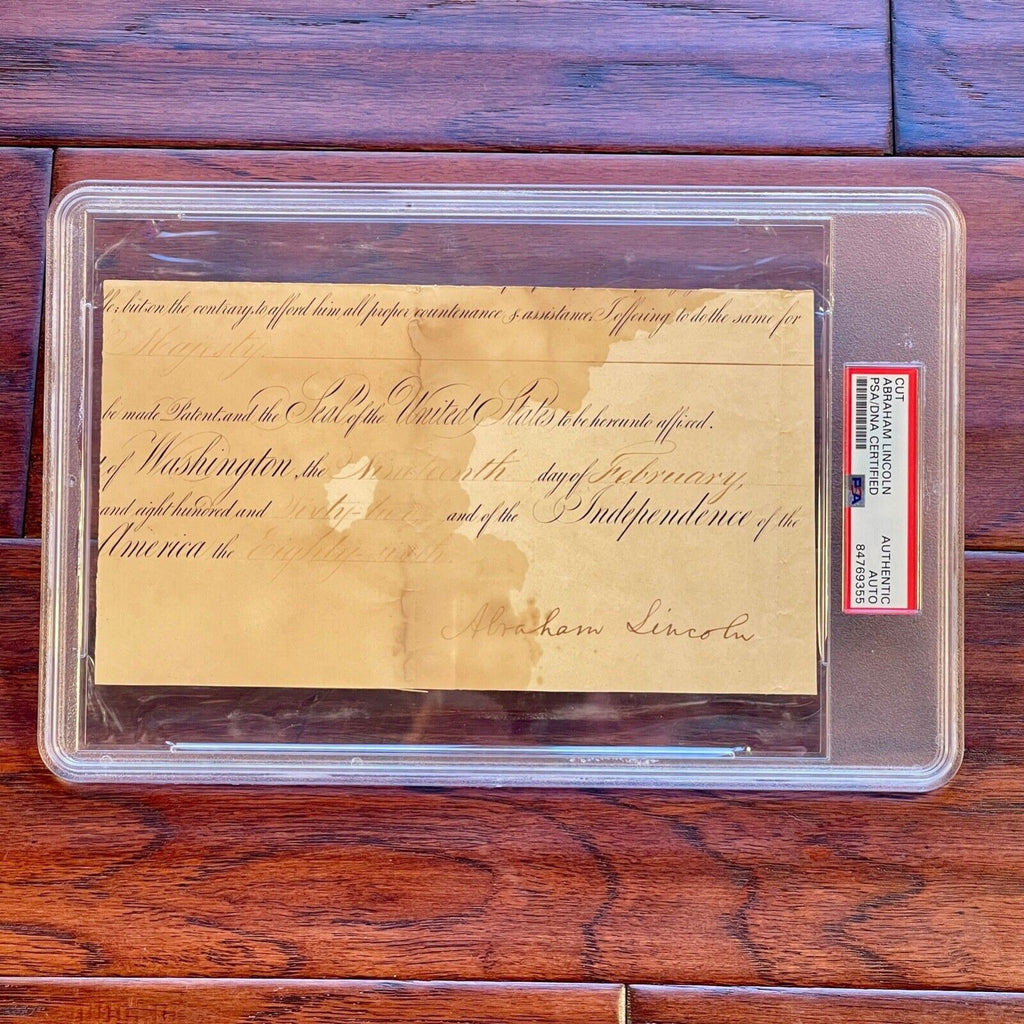 but on the contrary, to afford him all proper countenance & assistance; I offering to do the same for
Majesty.
be made Patent, and the Seal of the United States to be hereunto affixed.
of Washington, the Nineteenth day of February,
and eight hundred and sixty-two, and of the Independence of the
America the Eighty-sixth
Abraham Lincoln
CUT
ABRAHAM LINCOLN
PSA/DNA CERTIFIED
PSA
AUTHENTIC
AUTO
84769355